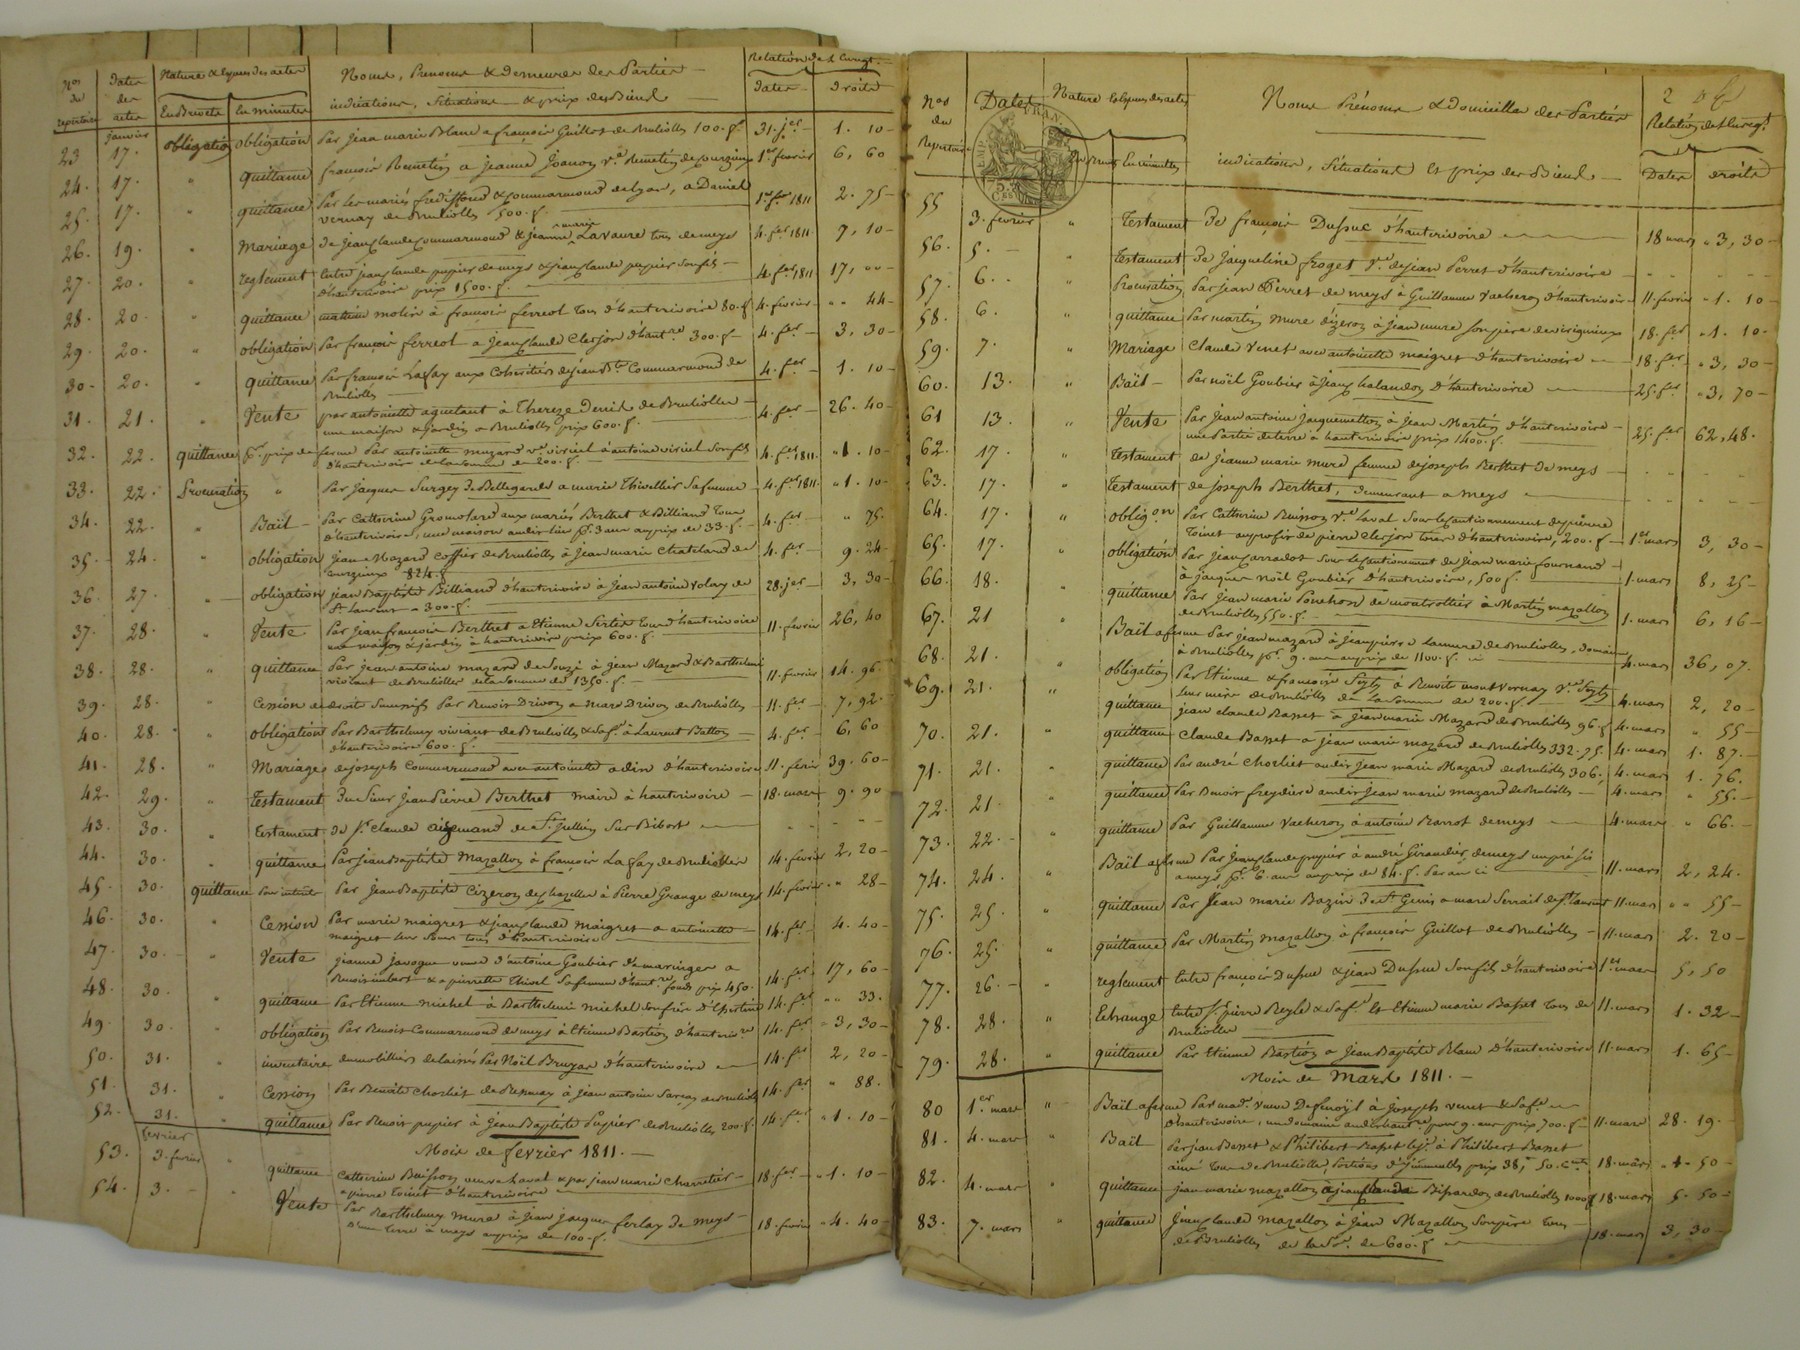 Nos du repertoire
Dates des actes
Nature & espèces des actes
En Brevets En minutes
Noms, Prenoms & demeures des Parties
indications, Situations & prix des Biens
Relation de l'Enregt.
Dates Droits
janvier
23 17. obligation obligation Par Jean marie Blanc a françois Guillot de Brulioles 100. f. 31. jer 1. 10
24. 17. " quittance françois a jeanne ve 1er fevrier 6, 60
25. 17. " quittance Par les mariés & Commarmond, a Daniel 1er fer 1811 2. 75
Vernay de Brulioles 500. f.
26. 19. " Mariage de jean Claude Commarmond & jeanne marie Lavaure tous de meys 4. fer 1811. 7, 10
27. 20. " reglement Entre jean Claude pupier de meys & jean Claude pupier son fils 4. fer 1811 17, 00
d'hauterivoire prix 1500. f.
28. 20. " quittance molin à françois ferreol tous d'hauterivoire 80. f 4. fevrier " 44
29. 20. " obligation Par françois ferreol a jean Claude Clerjon d'hautre 300. f 4. fer 3, 30
30. 20. " quittance Par françois Lafay aux Cohéritiers de jean Bte Commarmond de 4. fer 1. 10
Brulioles
31. 21. " Vente par antoinette à Thereze de Brulioles 4. fer 26. 40
une maison & jardin a Brulioles prix 600. f.
32. 22. quittance pr. prix de ferme Par antoinette mazard ve viriael à antoine viriael son fils 4. fer 1811. " 1. 10
d'hauterivoire de la somme de 200. f.
33. 22. Procuration " Par jacques Surgey de Bellegarde a marie Thivellier sa femme 4. fer 1811. " 1. 10
34. 22. " Bail Par Catherine aux mariés Berthet & Billiand tous 4. fer " 75.
d'hauterivoire, une maison audit lieu pr. 3 ans au prix de 33. f.
35. 24. " obligation jean Mazard de Brulioles à jean marie Chatelard de 4. fer 9. 24
824. f
36. 27. " obligation jean Baptiste Billiand d'hauterivoire à Jean antoine Volay de 28. jer 3, 30
St Laurent 300. f.
37. 28. " Vente Par jean françois Berthet a Etienne Sertier tous d'hauterivoire 11. fevrier 26, 40
une maison & jardin à hauterivoire prix 600. f.
38. 28. " quittance Par jean antoine mazard de Souzi à jean Mazard & Barthelemi 11. fevrier 14. 96
violant de Brulioles de la somme de 1350. f.
39. 28. " Cession de droits Par Benoit Drivon a marc Drivon de Brulioles 11. fer 7, 92.
40. 28. " obligation Par Barthelemy viviant de Brulioles & sa fe. à Laurent Batton 4. fer 6, 60
d'hauterivoire 600. f.
41. 28. " Mariage de joseph Commarmond avec antoinette d'hauterivoire 11. fevrier 39. 60
42. 29. " Testament du Sieur Jean Pierre Berthet maire à hauterivoire 18. mars 9. 90
43. 30. " testament de Sr Claude de St jullien Sur Bibost
44. 30. " quittance Par jean Baptiste Mazallon à françois Lafay de Brulioles 14. fevrier 2, 20
45. 30. quittance Par Jean Baptiste Cizeron de à Pierre Grange de meys 14. fevrier " 28
46. 30. " Cession Par marie maigret & jean Claude maigret a antoinette 14. fer 4. 40
maigret leur sœur tous d'hauterivoire
47. 30. " Vente jeanne javogue veuve d'antoine Goubier de maringes a 14. fer 17, 60
Benoit imbert & a pierrette Thivel sa femme d'hautre, fonds prix 450.
48. 30. " quittance Par Etienne michel à Barthelemi michel son frère 14. fer " 33.
49. 30. " obligation Par Benoit Commarmond de meys à Etienne Bastion d'hauterivre 14. fer 3, 30
50. 31. " inventaire du mobillier delaissé Par Noël Bruyas d'hauterivoire 14. fer 2, 20
51. 31. " Cession Par Benoite Chorliet de à Jean antoine Sarcey de Brulioles 14. fer " 88.
52. 31. " quittance Par Benoit pupier à Jean Baptiste Pupier de Brulioles 200. f. 14. fer 1. 10
fevrier Mois de fevrier 1811.
53. 3. fevrier " quittance Catherine Buisson veuve Laval & par jean marie Charretier 18. fer 1. 10
a pierre Toinet d'hauterivoire
54. 3. " Vente Par Barthelemy Mure à jean jacques ferlay de meys 18. fevrier 4. 40
d'une terre à meys au prix de 100. f.
2
Nos du Repertoire
Dates
Nature & especes des actes
En Brevet En minutes
Noms Prénoms & domiciles des Parties
indications, Situations et prix des Biens
Relation de l'Enregt.
Dates droits
55 3. fevrier " Testament de françois Dussuc d'hauterivoire 18 mars 3, 30
56. 5. " testament de Jacqueline froget ve de jean Perret d'hauterivoire
57. 6. " Procuration Par jean Perret de meys à Guillaume Vacheron d'hauterivoire 11. fevrier 1. 10
58. 6. " quittance Par martin mure à jean mure son père 18. fer 1. 10.
59. 7. " Mariage Claude Venet avec antoinette maigret d'hauterivoire 18. fer 3, 30
60. 13. " Bail Par noël Goubier à jean d'hauterivoire 25. fer 3, 70
61 13. " Vente Par jean antoine jaquemetton à Jean Martin d'hauterivoire 25. fer 62, 48.
une Partie de terre a hauterivoire prix 1400. f.
62. 17. " testament de jeanne marie mure femme de joseph Berthet de meys
63. 17. " testament de joseph Berthet, demeurant a meys
64. 17. " obligon Par Catherine Buisson ve Laval sous le Cautionnement de pierre 1er mars 3, 30
Toinet au profit de pierre Clerjon tous d'hauterivoire, 200. f.
65. 17. " obligation Par jean sous le Cautionnement de jean marie 1. mars 8, 25
à jacques noël Goubier d'hauterivoire, 500 f.
66. 18. " quittance Par Jean marie Ponchon de montrottier à Martin mazallon 1. mars 6, 16
de Brulioles 550. f.
67. 21 " Bail a ferme Par jean mazard à jean pierre Lavure de Brulioles, domaine 4. mars 36, 07.
à Brulioles pr. 9. ans au prix de 1100. f.
68. 21. " obligation Par Etienne & françoise à Benoite montvernay ve 4. mars 2, 20
leur mère de Brulioles de la somme de 200. f.
69. 21. " quittance jean claude Basset a jean marie Mazard de Brulioles 96. f 4. mars " 55
70. 21. " quittance Claude Basset a jean marie mazard de Brulioles 332. 75. 4. mars 1. 87.
71. 21. " quittance Par andré Chorliet audit Jean marie Mazard de Brulioles 306, 4. mars 1. 76.
72. 21 " quittance Par Benoit freydiere audit Jean marie mazard de Brulioles 4. mars " 55.
73. 22. " quittance Par Guillaume Vacheron à antoine de meys 4. mars " 66.
74. 24. " Bail a ferme Par jean Claude pupier à andré Girardier de meys un pré sis 11. mars 2, 24.
a meys, pr. 6. ans au prix de 84. f. Par an
75. 25. " quittance Par Jean marie Bazin de St Genis a marc Serrail de St laurent 11. mars " 55
76. 25. " quittance Par Martin mazallon à françois Guillot de Brulioles 11. mars 2. 20
77. 26. " reglement Entre françois Dussuc & jean Dussuc son fils d'hauterivoire 1er mars 5, 50
78. 28. " Echange Entre Sr. pierre & sa fe. Et Etienne marie Basset tous de 11. mars 1. 32
Brulioles
79. 28. " quittance Par Etienne Bastion a Jean Baptiste Blanc d'hauterivoire 11. mars 1. 65
Mois de Mars 1811.
80 1er mars " Bail a ferme Par made. veuve à joseph venet & sa fe.
d'hauterivoire, un domaine audit hautre pour 9. ans prix 700. f 11. mars 28. 19.
81. 4. mars " Bail Par jean Basset & Philibert Basset à Philibert Basset
ainé tous de Brulioles, Portions d'immeubles prix 38, f 50. Cmes 18. mars 4. 50
82. 4. mars " quittance jean marie mazallon à jean Claude Bissardon de Brulioles 1000 f 18. mars 5. 50
83. 7. mars " quittance Jean Claude Mazallon à jean Mazallon son père tous
de Brulioles de la Se. de 600. f 18. mars 3, 30